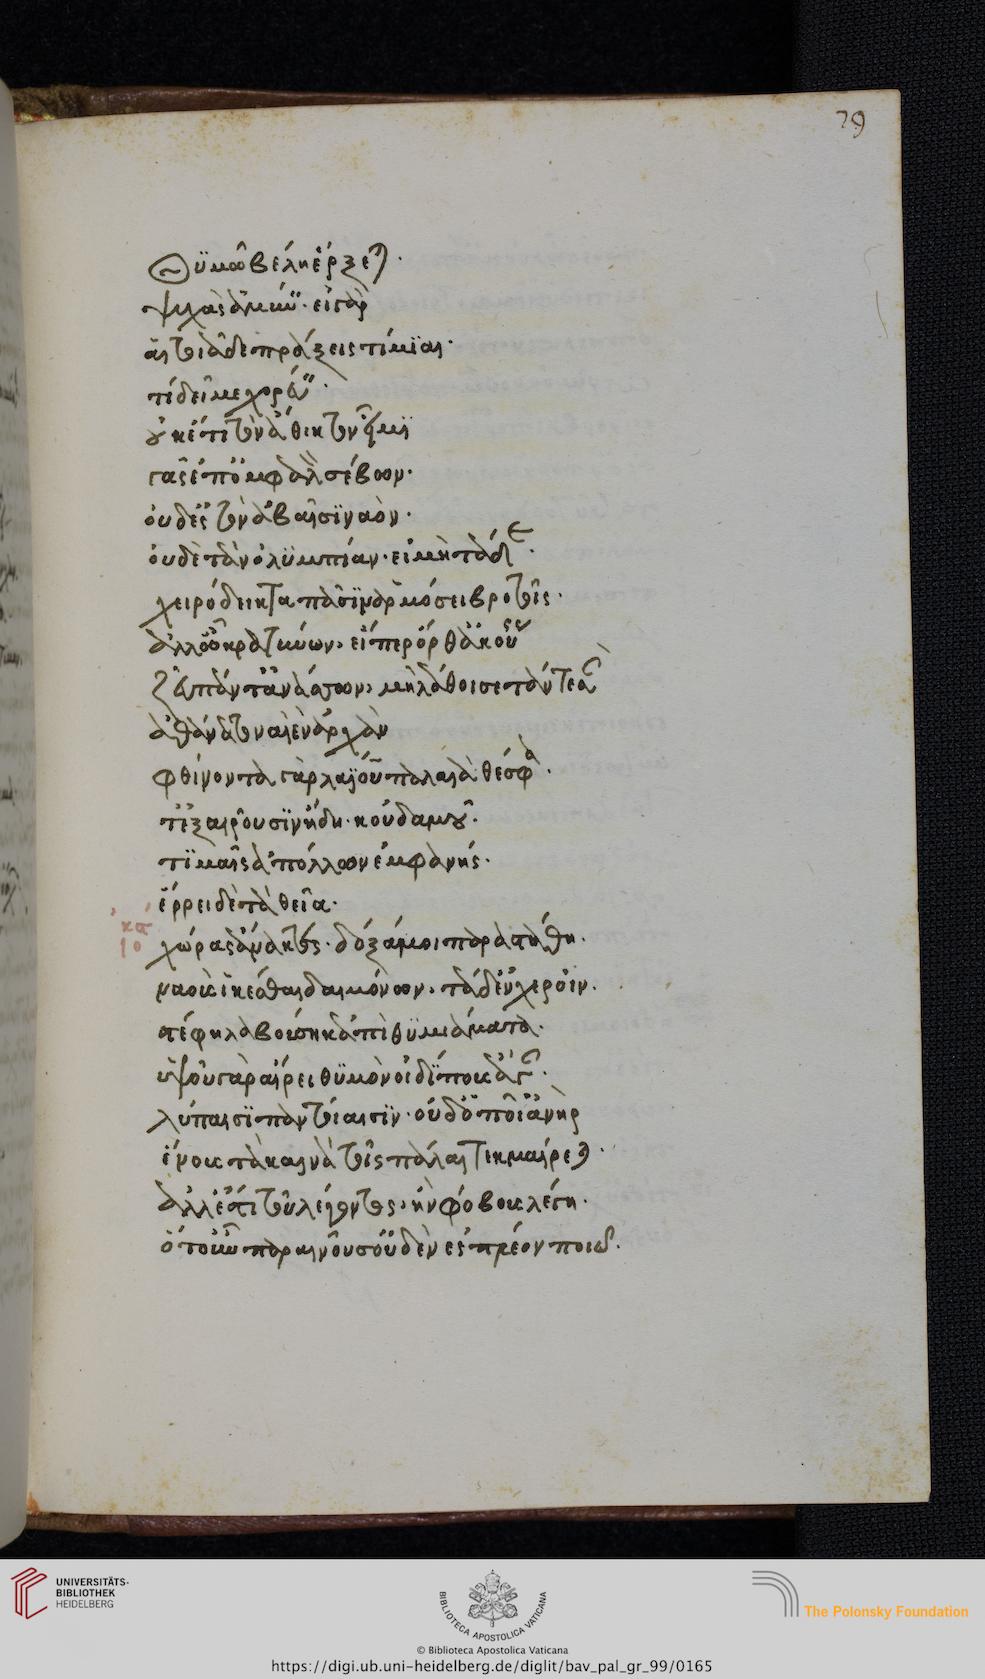 79
θυμῶ βέλη ἔρξεται.
ψυχᾶς ἀμύνειν. εἰ γὰρ
αἱ τοιαίδε πράξεις τίμιαι.
τί δεῖ με χορεύειν.
οὐκέτι τὸν ἄθικτον εἶμι
γᾶς ἐπ' ὀμφαλὸν σέβων.
οὐδ' ἐς τὸν ἀβαῖσι ναὸν.
οὐδὲ τὰν ὀλυμπίαν. εἰ μὴ τάδε.
χειρόδεικτα πᾶσιν ἁρμόσει βροτοῖς.
ἀλλ' ὦ κρατύνων, εἴπερ ὀρθὰ ἀκούεις
ζεῦ πάντ' ἀνάσσων, μὴ λάθοι σε τάν τε σὰν
ἀθάνατον αἰὲν ἀρχὰν
φθίνοντα γὰρ λαΐου παλαιὰ θέσφατα.
ἐξαιροῦσιν ἤδη. κοὐδαμοῦ.
τιμαῖς ἀπόλλων ἐμφανής.
ἔρρει δὲ τὰ θεῖα.
ἰο κα
χώρας ἄνακτες. δόξα μοι παρεστάθη.
ναοὺς ἱκέσθαι δαιμόνων, τάδ' ἐν χεροῖν.
στέφη λαβούσῃ κἀπιθυμιάματα.
ὑψοῦ γὰρ αἴρει θυμὸν οἰδίπους ἄγαν.
λύπαισι παντοίαισιν. οὐδ' ὁποῖ' ἀνὴρ
ἔννους τὰ καινὰ τοῖς πάλαι τεκμαίρεται.
ἀλλ' ἔστι τοῦ λέγοντος, ἢν φόβους λέγῃ.
ὅτ' οὖν παραινοῦσ' οὐδὲν ἐς πλέον ποιῶ.
UNIVERSITÄTS-
BIBLIOTHEK
HEIDELBERG
BIBLIOTECA APOSTOLICA VATICANA
The Polonsky Foundation
© Biblioteca Apostolica Vaticana
https://digi.ub.uni-heidelberg.de/diglit/bav_pal_gr_99/0165